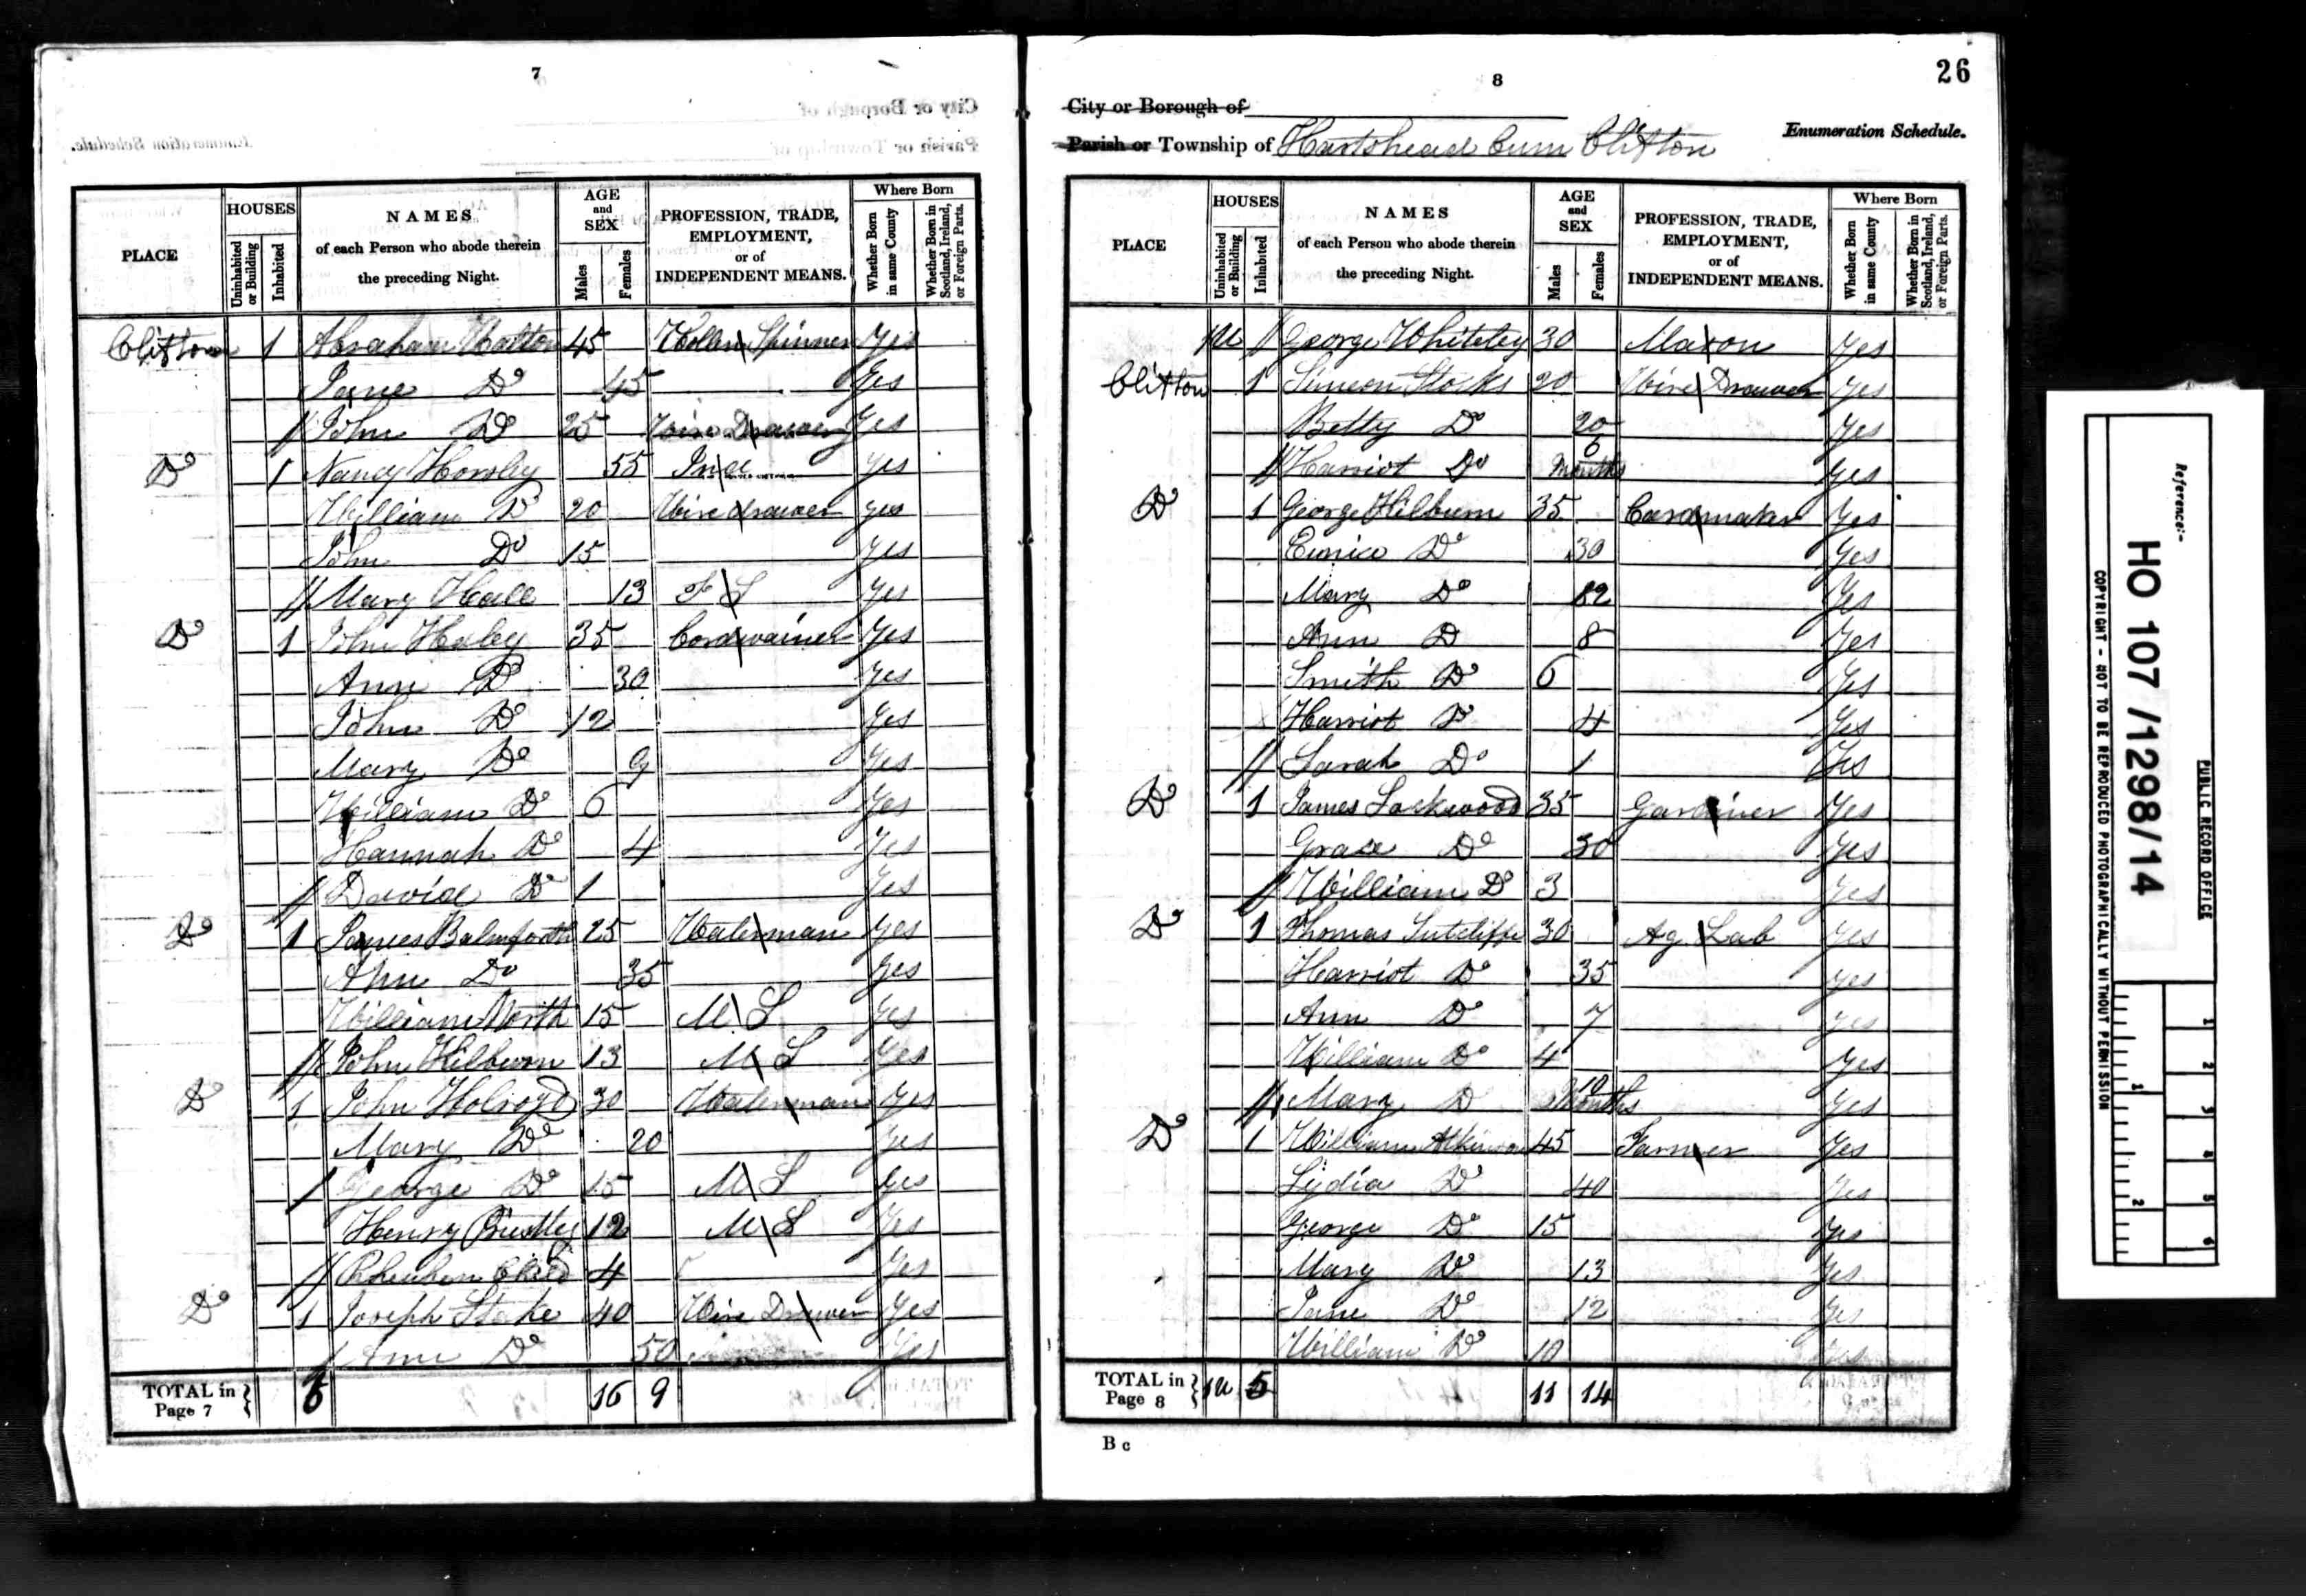 7
PLACE
HOUSES
Uninhabited or Building
Inhabited
NAMES
of each Person who abode therein
the preceding Night.
AGE
and
SEX
Males
Females
PROFESSION, TRADE,
EMPLOYMENT,
or of
INDEPENDENT MEANS.
Where Born
Whether Born in same County
Whether Born in Scotland, Ireland, or Foreign Parts.
Clifton 1 Abraham 45 Spinner Yes
Jane Do 45 Yes
John Do 25 Wire Drawer Yes
Do 1 Nancy Horsley 55 Ind Yes
William Do 20 Wire drawer yes
John Do 15 Yes
Mary Hall 13 F S Yes
Do 1 John Haley 35 Cordwainer Yes
Ann Do 30 Yes
John Do 12 Yes
Mary Do 9 Yes
William Do 6 Yes
Hannah Do 4 Yes
David Do 1 Yes
Do 1 James Balmforth 25 Waterman Yes
Ann Do 35 Yes
William North 15 M S Yes
John Hilburn 13 M S Yes
Do 1 John Holroyd 30 Waterman Yes
Mary Do 20 Yes
George Do 15 M S Yes
Henry Priestley 12 M S Yes
4 Yes
Do 1 Joseph 40 Wire Drawer Yes
Ann Do 50 Yes
TOTAL in Page 7 6 16 9
26
8
City or Borough of
Parish or Township of Hartshead Cum Clifton
Enumeration Schedule.
PLACE
HOUSES
Uninhabited or Building
Inhabited
NAMES
of each Person who abode therein
the preceding Night.
AGE
and
SEX
Males
Females
PROFESSION, TRADE,
EMPLOYMENT,
or of
INDEPENDENT MEANS.
Where Born
Whether Born in same County
Whether Born in Scotland, Ireland, or Foreign Parts.
1U George Whiteley 30 Mason Yes
Clifton 1 Simeon Stocks 20 Wire Drawer Yes
Betty Do 20 Yes
Harriot Do 6 Months Yes
Do 1 George Hilburn 35 Cardmaker Yes
Eunice Do 30 Yes
Mary Do 12 Yes
Ann D 8 Yes
Smith Do 6 Yes
Harriot Do 4 Yes
Sarah Do 1 Yes
Do 1 James Lockwood 35 Gardiner Yes
Grace Do 30 Yes
William Do 3 Yes
Do 1 Thomas Sutcliffe 30 Ag Lab Yes
Harriot Do 35 Yes
Ann Do 7 Yes
William Do 4 Yes
Mary D 10 Months Yes
Do 1 William Atkinson 45 Farmer Yes
Lydia Do 40 Yes
George Do 15 Yes
Mary Do 13 Yes
Jane Do 12 Yes
William Do 10 Yes
TOTAL in Page 8 1U 5 11 14
B c
Reference:-
HO 107 /1298/14
PUBLIC RECORD OFFICE
COPYRIGHT - NOT TO BE REPRODUCED PHOTOGRAPHICALLY WITHOUT PERMISSION